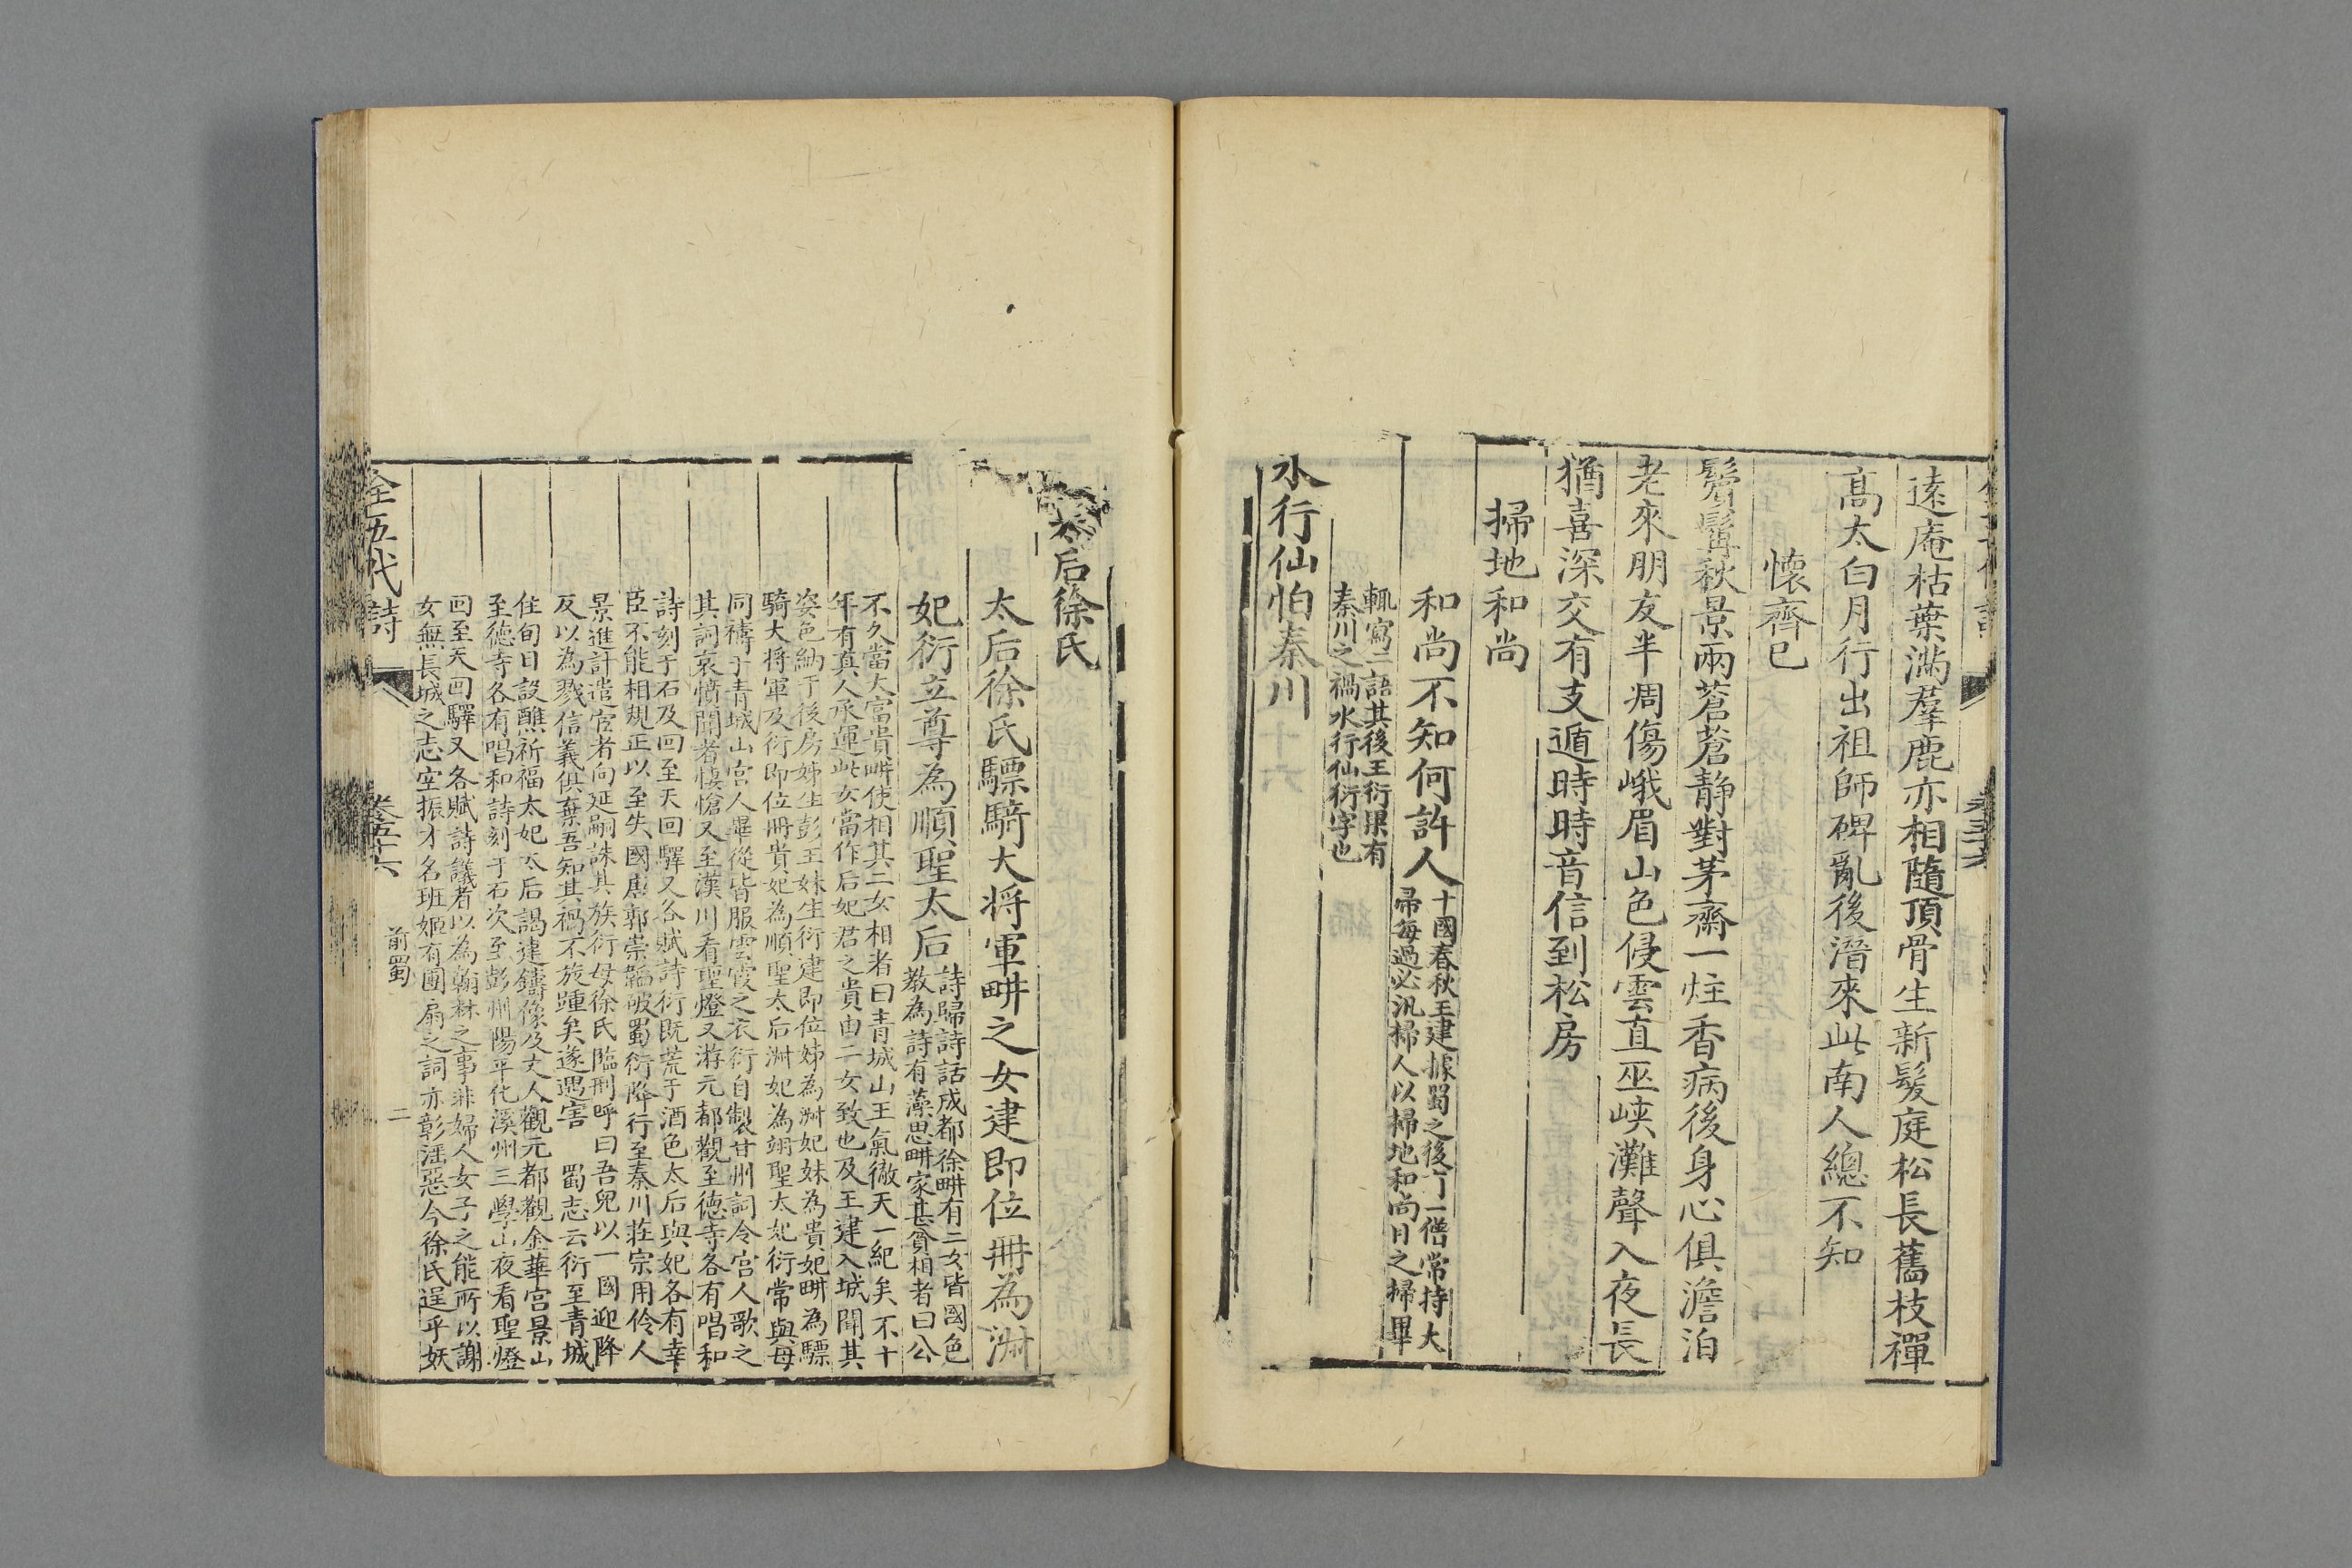 遠庵枯葉滿羣鹿亦相隨頂骨生新髮庭松長舊枝禪
高太白月行出祖師碑亂後潛來此南人總不知
懷齊已
鬢髯秋景兩蒼蒼静對茅齋一炷香病後身心俱澹泊
老來朋友半凋傷峨眉山色侵雲直巫峽灘聲入夜長
猶喜深交有支遁時時音信到松房
掃地和尚
和尚不知何許人
十國春秋王建據蜀之後有一僧常持大
帚每過必汛掃人以掃地和尚目之掃畢
輒寫二語其後王衍果有
秦川之禍水行仙衍字也
水行仙怕秦川
太后徐氏
太后徐氏驃騎大将軍畊之女建即位冊為淑
妃衍立尊為順聖太后
詩歸詩話成都徐畊有二女皆國色
教為詩有藻思畊家甚貧相者曰公
不久當大富貴畊使相其二女相者曰青城山王氣徹天一紀矣不十
年有真人承運此女當作后妃君之貴由二女致也及王建入城聞其
姿色納于後房姊生彭王妹生衍建即位姊為淑妃妹為貴妃畊為驃
騎大将軍及衍即位冊貴妃為順聖太后淑妃為翊聖太妃衍常與母
同禱于青城山宫人畢從皆服雲霞之衣衍自製甘州詞令宫人歌之
其詞哀憤聞者悽愴又至漢川看聖燈又游元都觀至德寺各有唱和
詩刻于石及回至天回驛又各賦詩衍既荒于酒色太后與妃各有幸
臣不能相規正以至失國唐郭崇韜破蜀衍降行至秦川莊宗用伶人
景進計遣宦者向延嗣誅其族衍母徐氏臨刑呼曰吾兒以一國迎降
反以為戮信義俱棄吾知其禍不旋踵矣遂遇害　蜀志云衍至青城
住旬日設醮祈福太妃太后謁建鑄像及丈人觀元都觀金華宫景山
至德寺各有唱和詩刻于石次至彭州陽平化溪州三學山夜看聖燈
回至天回驛又各賦詩議者以為翰林之事非婦人女子之能所以謝
女無長城之志空振才名班姬有團扇之詞亦彰淫惡今徐氏逞乎妖
全五代詩
卷五十六
前蜀
二